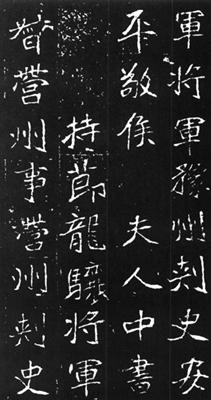 軍將軍豫州刺史安
平敬侯　夫人中書
持節龍驤將軍
督營州事營州刺史